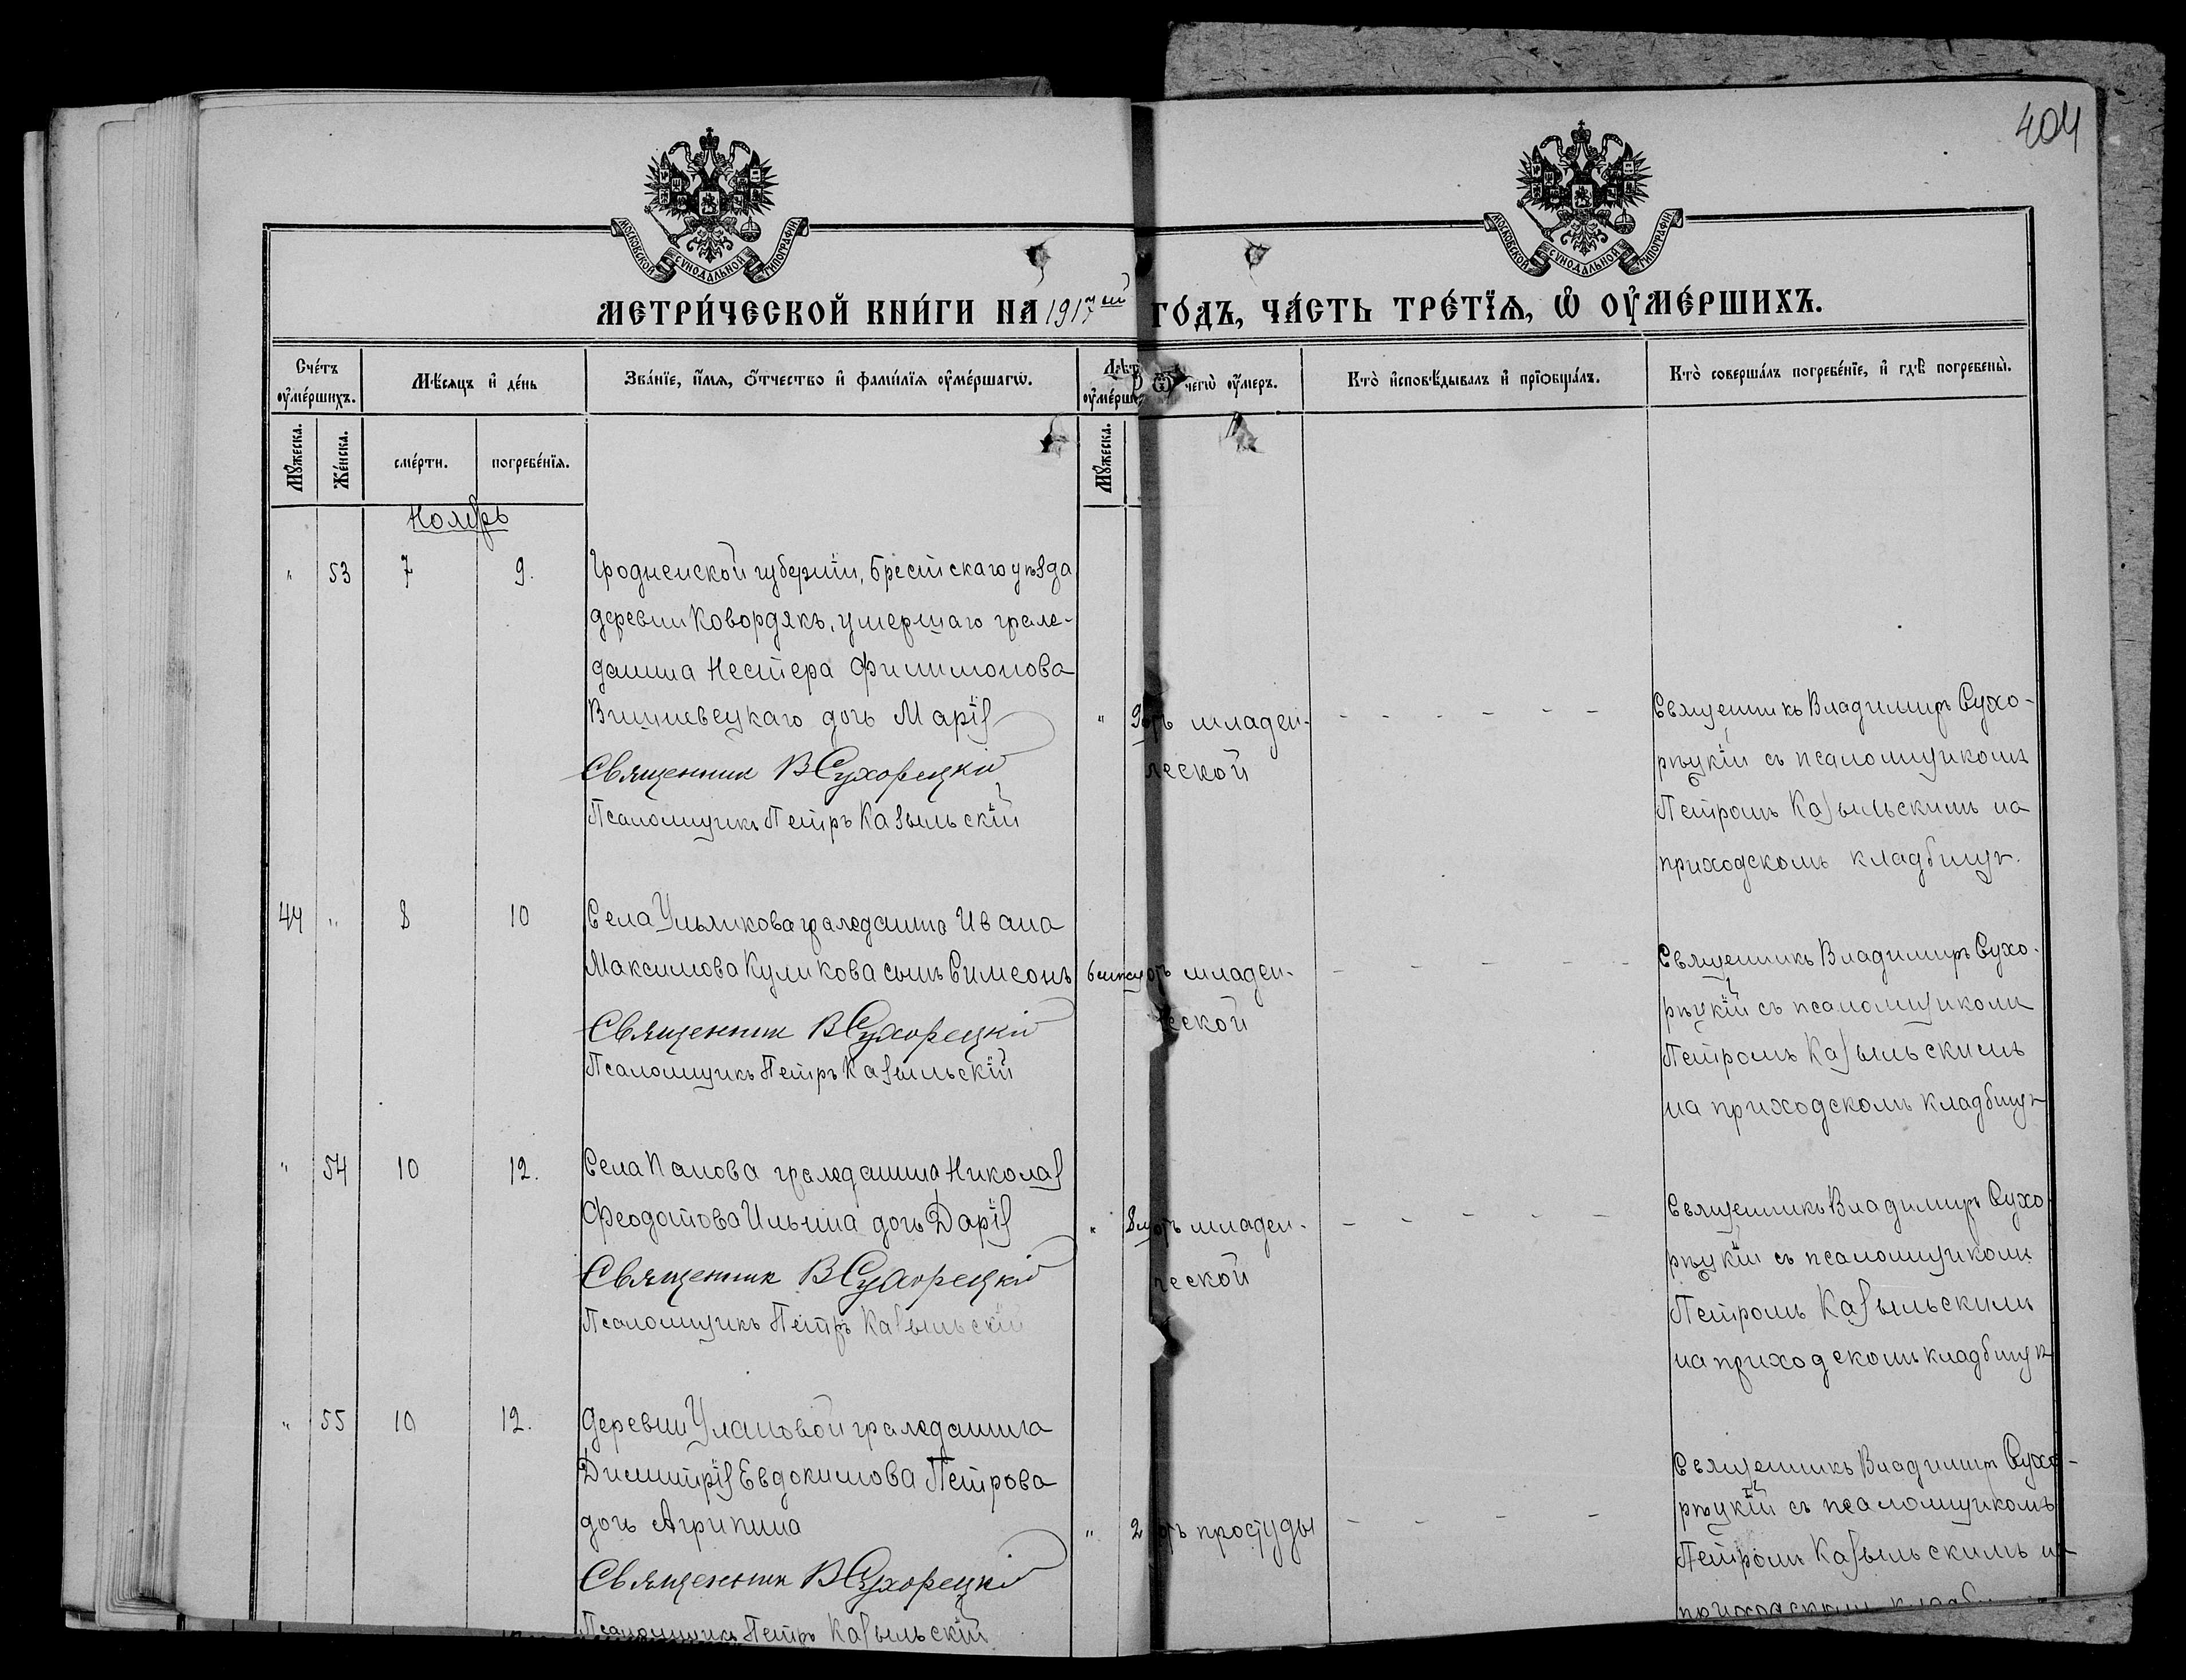 404
МОСКОВСКОЙ СѴНОДАЛЬНОЙ ТИПОГРАФІИ
МОСКОВСКОЙ СѴНОДАЛЬНОЙ ТИПОГРАФІИ
МЕТРИ́ЧЕСКОЙ КНИ́ГИ НА 1917 ГО́ДЪ, ЧА́СТЬ ТРЕ́ТЇѦ, Ѡ҆ ОУ҆МЕ́РШИХЪ.
Сче́тъ оу҆ме́ршихъ.
Мѣ́сѧцъ и҆ де́нь
Зва́нїе, и҆́мѧ, ѻ҆́тчество и҆ фами́лїѧ оу҆ме́ршагѡ.
Лѣ́тъ
чегѡ̀ оу҆́меръ.
Кто̀ и҆сповѣ́дывалъ и҆ прїѡбща́лъ.
Кто̀ соверша́лъ погребе́нїе, и҆ гдѣ̀ погребены̀.
Мꙋ́жеска.
Же́нска.
сме́рти.
погребе́нїѧ.
Мꙋ́жеска.
Ноябрь
" 53 7 9.
Гродненской губерніи, Брестскаго уѣзда
деревни умершаго граж-
данина Нестера Филимонова
Вишневецкаго дочь Марія
Священник В Сухорецкій
Псаломщикъ Петръ Казыльскій
" отъ младен-
ческой
Священникъ Владиміръ Сухо-
рѣцкій съ псаломщикомъ
Петромъ Казыльскимъ на
приходскомъ кладбищѣ.
44 " 8 10
Села Ульянкова гражданина Ивана
Максимова Куликова сынъ Симеонъ
Священник В Сухорецкій
Псаломщикъ Петръ Казыльскій
отъ младен-
ческой
Священникъ Владиміръ Сухо-
рѣцкій съ псаломщикомъ
Петромъ Казыльскимъ
на приходскомъ кладбищѣ
" 54 10 12.
Села Панова гражданина Николая
Феодотова Ильина дочь Дарія
Священник В Сухорецкій
Псаломщикъ Петръ Казыльскій
" отъ младен-
ческой
Священникъ Владиміръ Сухо
рѣцкій съ псаломщикомъ
Петромъ Казыльскимъ
на приходскомъ кладбищѣ
" 55 10 12.
Деревни Улановой гражданина
Димитрія Евдокимова Петрова
дочь Агрипина
Священник В Сухорецкій
Псаломщикъ Петръ Казыльскій
" 2 отъ простуды
Священникъ Владиміръ Сухо-
рѣцкій съ псаломщикомъ
Петромъ Казыльскимъ на
приходскомъ